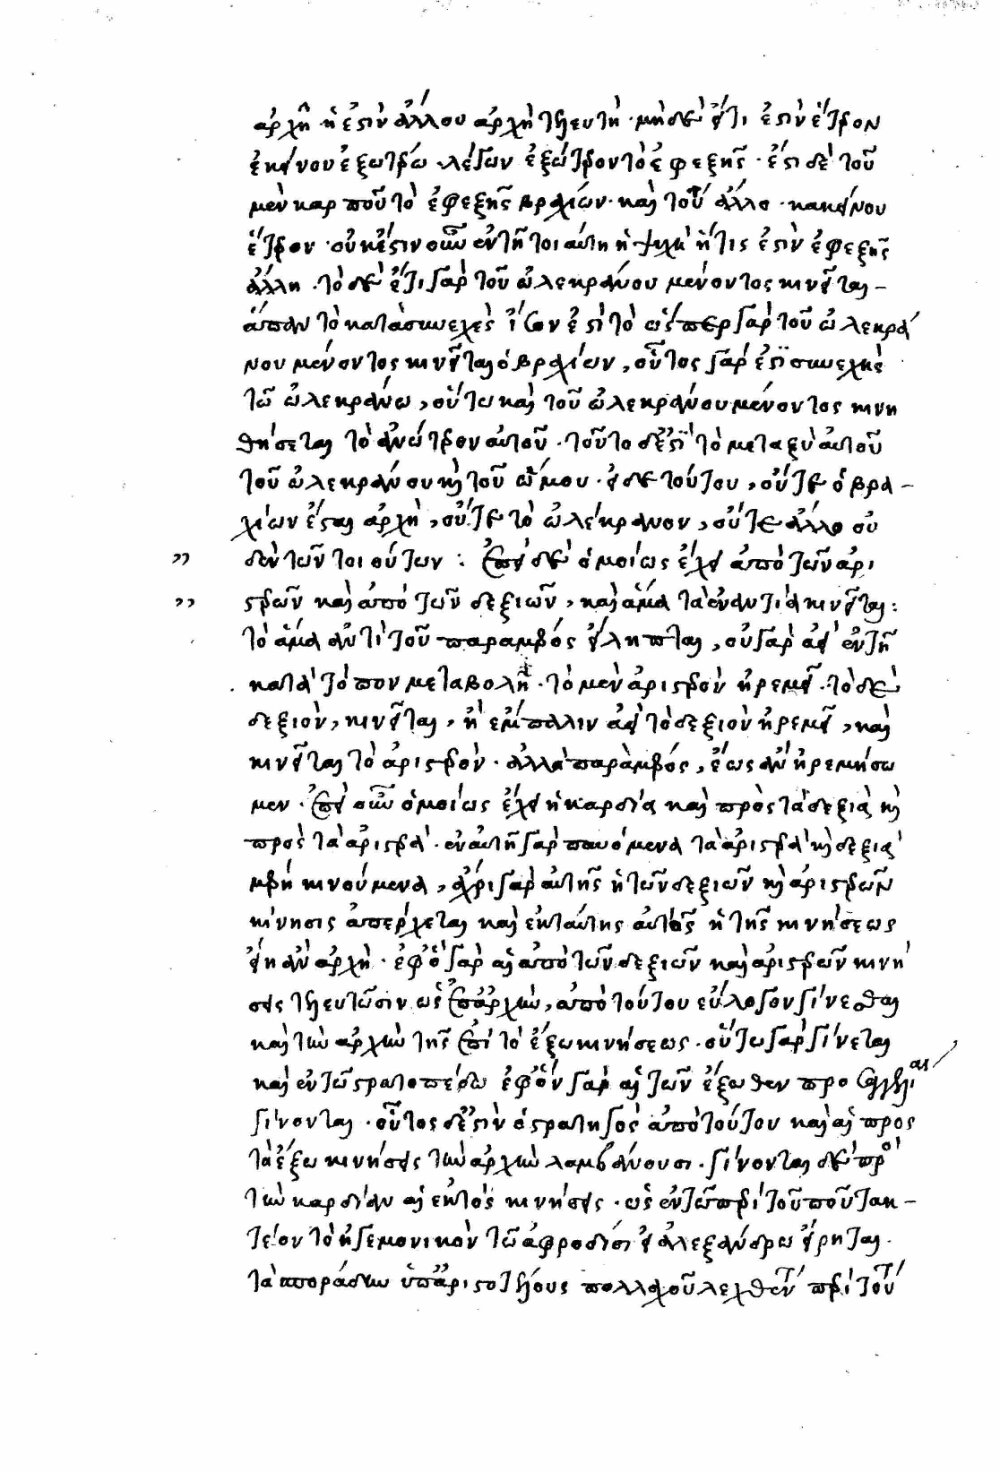 ἀρχὴ ἢ ἐστὶν ἄλλου ἀρχὴ τελευτὴ · μὴ δὲ ἔτι ἐστὶν ἕτερον
ἐκείνου ἐξωτέρω · λέγων ἐξώτερον τὸ ἐφεξῆς · ἔστι δὲ τοῦ
μὲν καρποῦ τὸ ἐφεξῆς βραχίων · καὶ τοῦ ἄλλο · κακείνου
ἕτερον · οὐκ ἔστιν οὖν ἐν τῆ τοιαύτη ἡ ψυχὴ ἥτις ἐστὶν ἐφεξῆς
ἄλλη · τὸ δὲ ἔτι γὰρ τοῦ ὠλεκράνου μένοντος κινεῖται –
ἅπαν τὸ κατὰ συνεχὲς ἴσον ἐστὶ τὸ ὥσπερ γὰρ τοῦ ὠλεκρά
νου μένοντος κινεῖται ὁ βραχίων, οὗτος γὰρ ἐστὶ συνεχὴς
τῶ ὠλεκράνω, οὕτω καὶ τοῦ ὠλεκράνου μένοντος κινη
θήσεται τὸ ἀνώτερον αὐτοῦ · τοῦτο δ' ἐστὶ τὸ μεταξὺ αὐτοῦ
τοῦ ὠλεκράνου καὶ τοῦ ὤμου · εἰ δὲ τούτου, οὔτε ὁ βρα –
χίων ἔσται ἀρχὴ, οὔτε τὸ ὠλέκρανον, οὔτε ἄλλο οὐ
δὲν τῶν τοιούτων : Ἐπεὶ δὲ ὁμοίως ἔχει ἀπὸ τῶν ἀρι
στερῶν καὶ ἀπὸ τῶν δεξιῶν, καὶ ἅμα τἀναντία κινεῖται :
τὸ ἅμα ἀντὶ τοῦ παραμερὸς εἴληπται, οὐ γὰρ ἀεὶ ἐν τῆ
κατὰ τόπον μεταβολῆ · τὸ μὲν ἀριστερὸν ἠρεμεῖ · τὸ δὲ
δεξιὸν, κινεῖται, ἢ ἐμπάλιν ἀεὶ τὸ δεξιὸν ἠρεμεῖ, καὶ
κινεῖται τὸ ἀριστερὸν · ἀλλὰ παραμερός, ἕως ἂν ἠρεμήσω
μεν · Ἐπεὶ οὖν ὁμοίως ἔχει ἡ καρδία καὶ πρὸς τὰ δεξιὰ καὶ
πρὸς τὰ ἀριστερὰ · ἐν αὐτῆ γὰρ παυόμενα τὰ ἀριστερὰ καὶ δεξιὰ
μέρη κινούμενα, ἄχρι γὰρ αὐτῆς ἡ τῶν δεξιῶν καὶ ἀριστερῶν
κίνησις ἀπέρχεται καὶ ἐκ ταύτης αὐτοῖς ἡ τῆς κινήσεως
εἴη ἂν ἀρχὴ · ἐφ' ὃ γὰρ αἱ ἀπὸ τῶν δεξιῶν καὶ ἀριστερῶν κινή
σεις τελευτῶσιν ὡς ἐπ' ἀρχὴν, ἀπὸ τούτου εὔλογον γίνεσθαι
καὶ τὴν ἀρχὴν τῆς ἐπὶ τὸ ἔξω κινήσεως · οὕτω γὰρ γίνεται
καὶ ἐν τῶ στρατοπέδω ἐφ' ὃν γὰρ αἱ τῶν ἔξωθεν προσαγγελίαι
γίνονται · οὗτος δ' ἐστὶν ὁ στρατηγὸς ἀπὸ τούτου καὶ αἱ πρὸς
τὰ ἔξω κινήσεις τὴν ἀρχὴν λαμβάνουσι · γίνονται δὲ πρὸ
τὴν καρδίαν αἱ ἐκτὸς κινήσεις · ὡς ἐν τῶ περὶ τοῦ ποῦ τακ –
τέον τὸ ἡγεμονικὸν τῶ ἀφροδισιεῖ ἀλεξάνδρω εἴρηται ·
τὰ παράπαν ὑπ' ἀριστοτέλους πολλαχοῦ λεχθέντα περὶ τοῦ